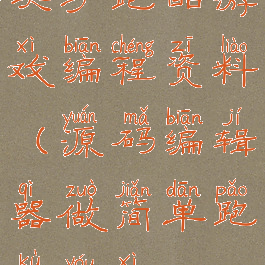 跑酷游
xì biān chéng zī liào
戏编程资料
yuán mǎ biān jí
(源码编辑
qì zuò jiǎn dān pǎo
器做简单跑
kù yóu xì